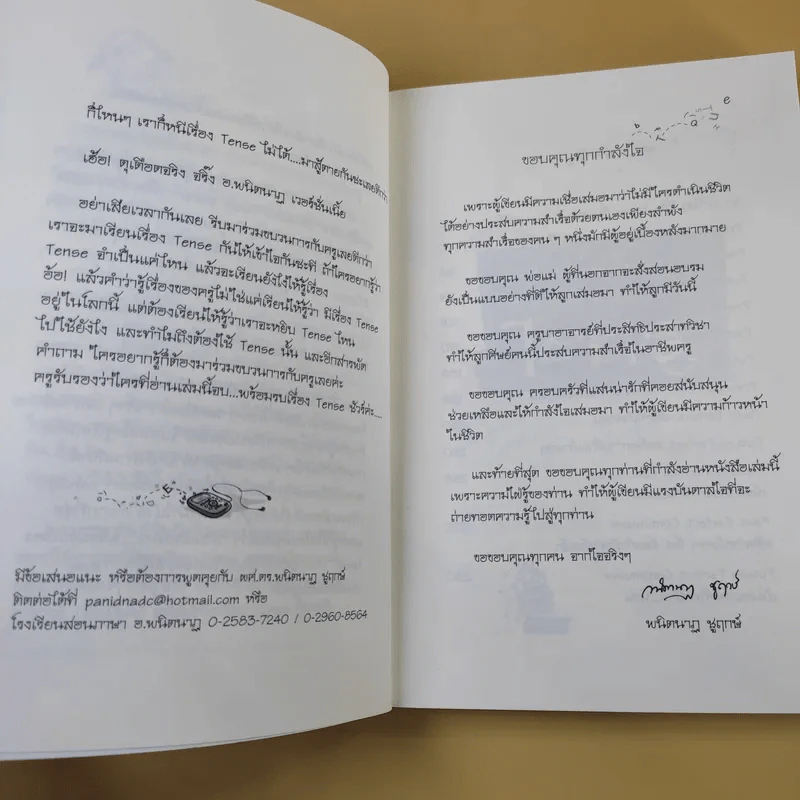 ก็ไหนๆ เราก็หนีเรื่อง Tense ไม่ได้....มาสู้ตายกันซะเลยดีกว่า
เฮ้อ! ดุเดือดจริง จริ๊ง อ.พนิตนาฏ เวอร์ชั่นเนี้ย
อย่าเสียเวลากันเลย รีบมาร่วมขบวนการกับครูเลยดีกว่า
เราจะมาเรียนเรื่อง Tense กันให้เข้าใจกันซะที ถ้าใครอยากรู้ว่า
Tense จำเป็นแค่ไหน แล้วจะเรียนยังไงให้รู้เรื่อง
อ้อ! แล้วคำว่ารู้เรื่องของครูไม่ใช่แค่เรียนให้รู้ว่า มีเรื่อง Tense
อยู่ในโลกนี้ แต่ต้องเรียนให้รู้ว่าเราจะหยิบ Tense ไหน
ไปใช้ยังไง และทำไมถึงต้องใช้ Tense นั้น และอีกสารพัด
คำถาม ใครอยากรู้ก็ต้องมาร่วมขบวนการกับครูเลยค่ะ
ครูรับรองว่าใครที่อ่านเล่มนี้จบ...พร้อมรบเรื่อง Tense ชัวร์ค่ะ....
มีข้อเสนอแนะ หรือต้องการพูดคุยกับ ผศ.ดร.พนิตนาฏ ชูฤกษ์
ติดต่อได้ที่ panidnadc@hotmail.com หรือ
โรงเรียนสอนภาษา อ.พนิตนาฏ 0-2583-7240 / 0-2960-8564
ขอบคุณทุกกำลังใจ
เพราะผู้เขียนมีความเชื่อเสมอมาว่าไม่มีใครดำเนินชีวิต
ได้อย่างประสบความสำเร็จด้วยตนเองเพียงลำพัง
ทุกความสำเร็จของคน ๆ หนึ่งมักมีผู้อยู่เบื้องหลังมากมาย
ขอขอบคุณ พ่อแม่ ผู้ที่นอกจากจะสั่งสอนอบรม
ยังเป็นแบบอย่างที่ดีให้ลูกเสมอมา ทำให้ลูกมีวันนี้
ขอขอบคุณ ครูบาอาจารย์ที่ประสิทธิประสาทวิชา
ทำให้ลูกศิษย์คนนี้ประสบความสำเร็จในอาชีพครู
ขอขอบคุณ ครอบครัวที่แสนน่ารักที่คอยสนับสนุน
ช่วยเหลือและให้กำลังใจเสมอมา ทำให้ผู้เขียนมีความก้าวหน้า
ในชีวิต
และท้ายที่สุด ขอขอบคุณทุกท่านที่กำลังอ่านหนังสือเล่มนี้
เพราะความใฝ่รู้ของท่าน ทำให้ผู้เขียนมีแรงบันดาลใจที่จะ
ถ่ายทอดความรู้ไปสู่ทุกท่าน
ขอขอบคุณทุกคน จากใจจริงๆ
พนิตนาฏ ชูฤกษ์
พนิตนาฏ ชูฤกษ์